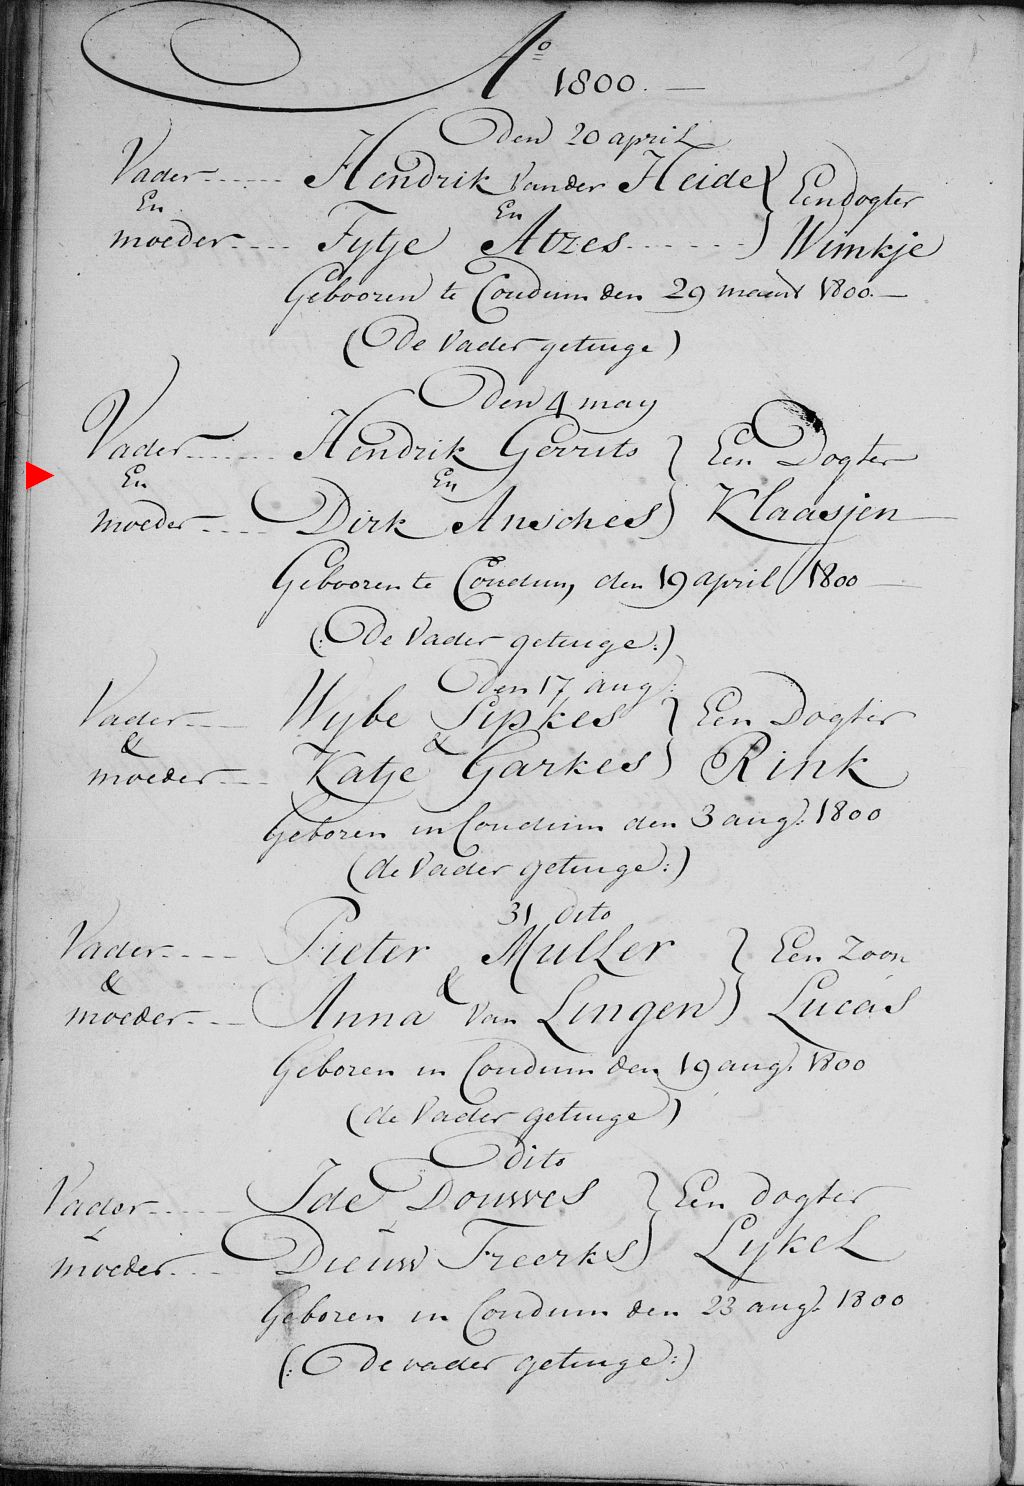 Ao 1800.
Den 20 april
Vader Hendrik Vander Heide Een dogter
En En
moeder Fytje Atzes Wimkje
Gebooren te Coudum den 29 maart 1800.
(De Vader getuige)
Den 4 may
Vader Hendrik Gerrits Een Dogter
En En
moeder Dirk Ansches Klaasjen
Gebooren te Coudum, den 19 april 1800
(: De Vader getuige:)
Den 17 aug.
Vader Wybe Sipkes Een Dogter
& &
moeder Katje Garkes Rink
Geboren in Coudum den 3 aug. 1800
(de Vader getuige:)
31 dito
Vader Pieter Muller Een Zoon
& &
moeder Anna van Lingen Lucas
Geboren in Coudum den 19 aug. 1800
(de Vader getuige)
Dito
Vader Ide Douwes Een dogter
& &
moeder Dieuw Freerks Lykel
Geboren in Coudum den 23 aug. 1800
(: De vader getuige:)